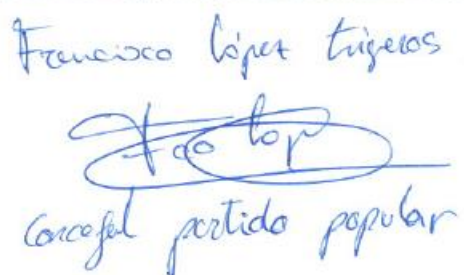 Francisco López Trigeros
Fco Lop
Concejal partido popular